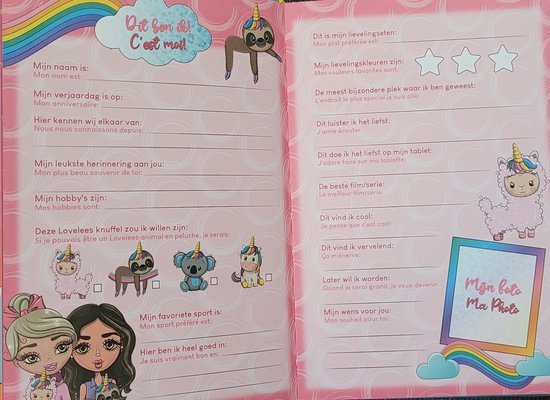 Dit ben ik!
C'est moi!
Mijn naam is:
Mon nom est:
Mijn verjaardag is op:
Mon anniversaire:
Hier kennen wij elkaar van:
Nous nous connaissons depuis:
Mijn leukste herinnering aan jou:
Mon plus beau souvenir de toi:
Mijn hobby's zijn:
Mes hobbies sont:
Deze Lovelees knuffel zou ik willen zijn:
Si je pouvais être un Lovelees animal en peluche, je serais:
Mijn favoriete sport is:
Mon sport préféré est:
Hier ben ik heel goed in:
Je suis vraiment bon en:
Dit is mijn lievelingseten:
Mon plat préféré est:
Mijn lievelingskleuren zijn:
Mes couleurs favorites sont:
De meest bijzondere plek waar ik ben geweest:
L'endroit le plus special je suis allé:
Dit luister ik het liefst:
J'aime écouter:
Dit doe ik het liefst op mijn tablet:
J'adore faire sur ma tablette:
De beste film/serie:
Le meilleur film/série:
Dit vind ik cool:
Je pense que c'est cool:
Dit vind ik vervelend:
Ca m'énerve:
Later wil ik worden:
Quand je serai grand, je veux devenir:
Mijn wens voor jou:
Mon souhait pour toi:
Mijn foto
Ma Photo